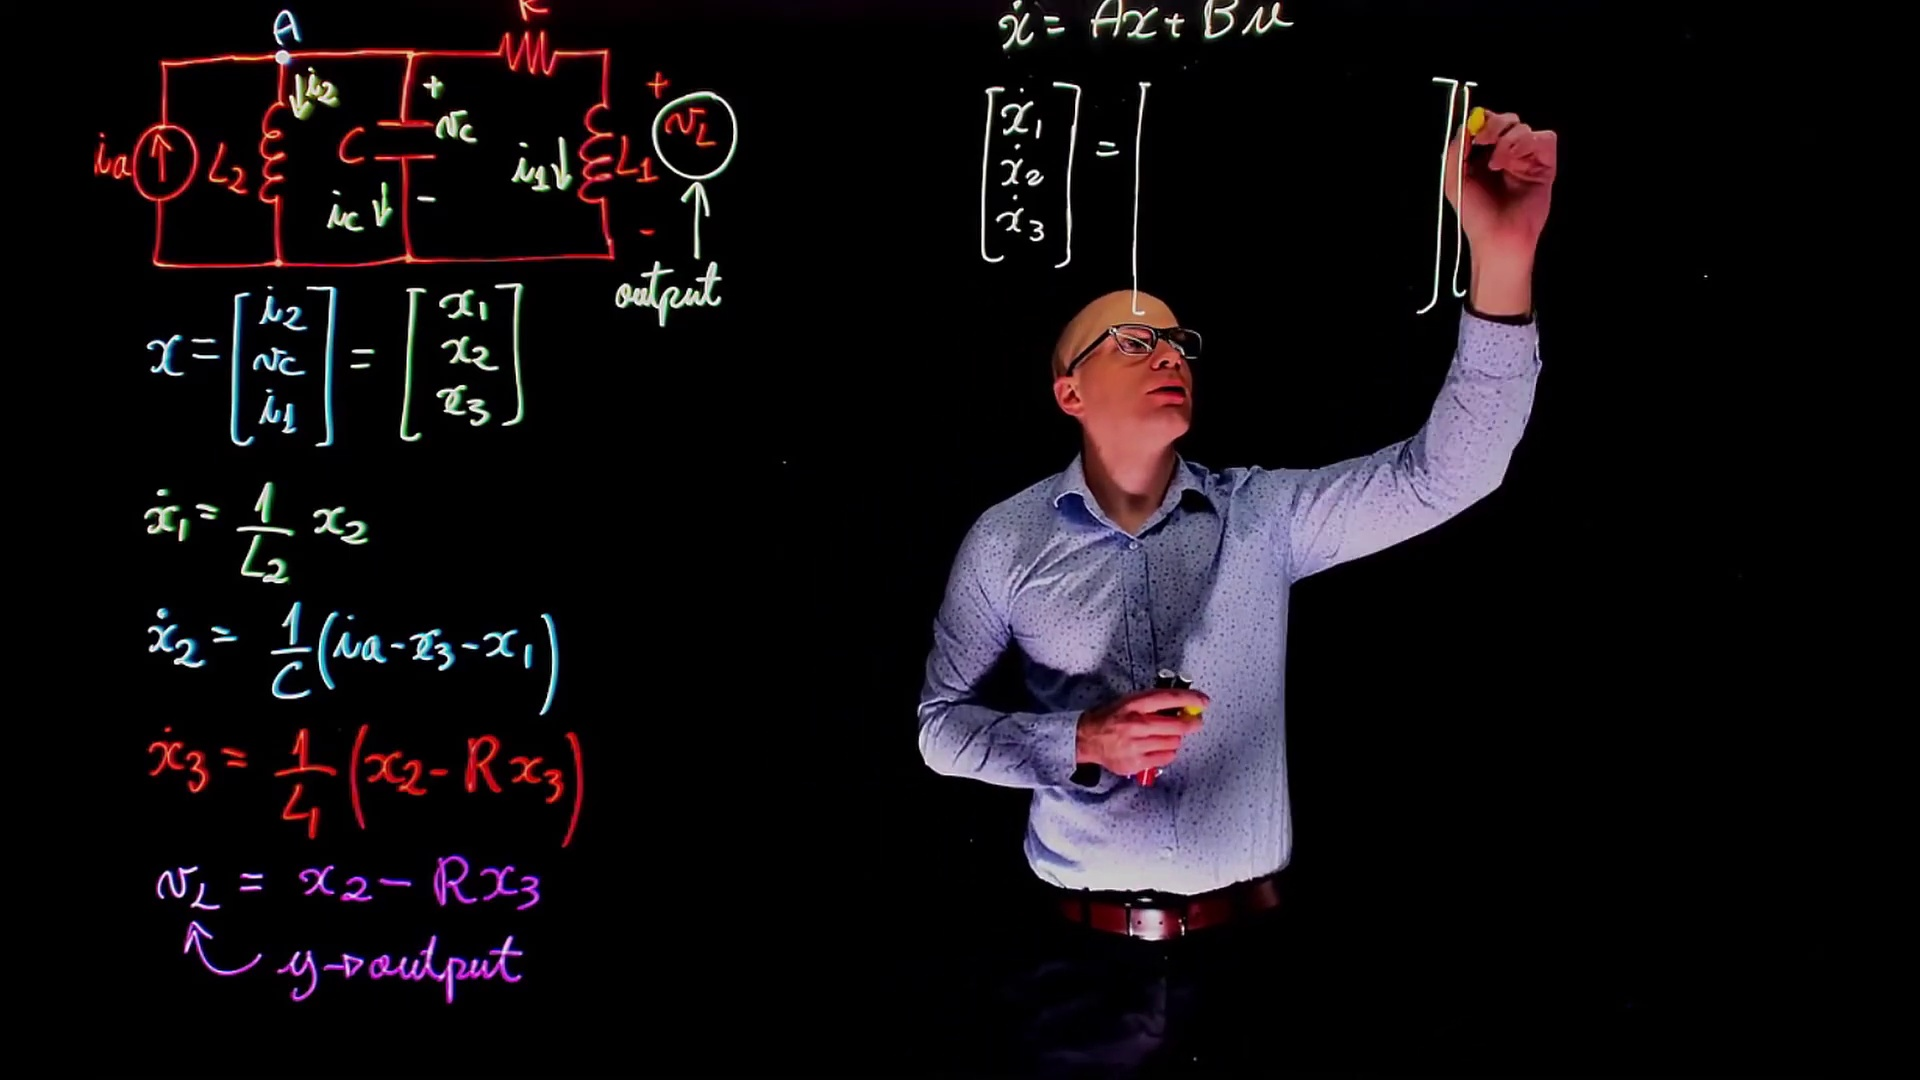 A
R
i2
+
+
ia
L2
C
vc
i1
L1
vL
ic
-
-
output
x = [i2 vc i1] = [x1 x2 x3]
ẋ1 = 1/L2 x2
ẋ2 = 1/C (ia - x3 - x1)
ẋ3 = 1/L1 (x2 - Rx3)
vL = x2 - Rx3
y → output
ẋ = Ax + Bu
[ẋ1 ẋ2 ẋ3] = [ ] [